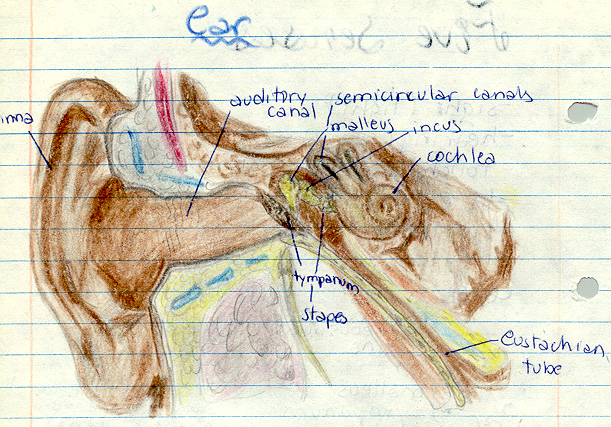 ear
Five Senses
auditory
canal
semicircular canals
malleus
incus
cochlea
inna
tympanum
stapes
eustachian
tube